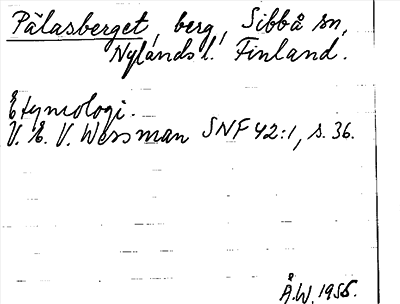 Pålasberget, berg, Sibbå sn,
Nylands l. Finland.
Etymologi.
V. E. V. Wessman SNF 42:1, s. 36.
Å.W. 1956.